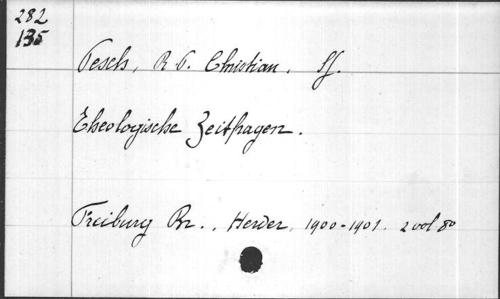 282
135
Pesch, R. P. Christian. SJ.
Theologische Zeitfragen.
Freiburg Br., Herder, 1900-1901. 2 vol 8o